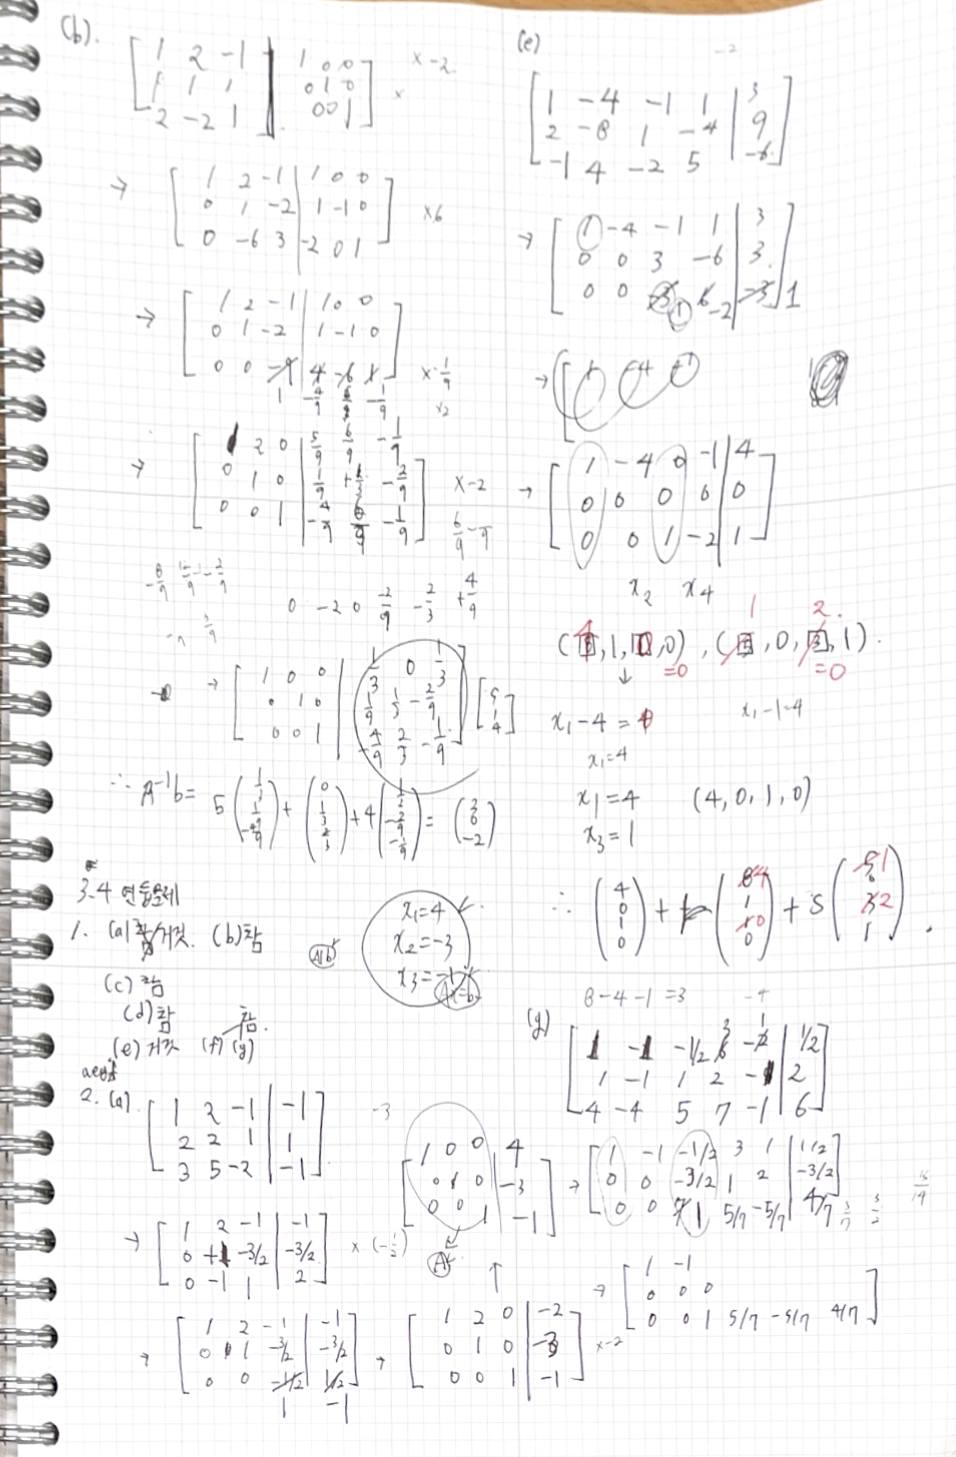 (b).
[ 1 2 -1 | 1 0 0 ] × -2
[ 1 1 1 | 0 1 0 ] ×
[ 2 -2 1 | 0 0 1 ]
→ [ 1 2 -1 | 1 0 0 ]
[ 0 1 -2 | 1 -1 0 ] ×6
[ 0 -6 3 | -2 0 1 ]
→ [ 1 2 -1 | 1 0 0 ]
[ 0 1 -2 | 1 -1 0 ]
[ 0 0 -9 | 4 -6 1 ] × -1/9
1 -4/9 6/9 -1/9 ×2
→ [ 1 2 0 | 5/9 6/9 -1/9 ]
[ 0 1 0 | 1/9 +1/3 -2/9 ] × -2
[ 0 0 1 | -4/9 6/9 -1/9 ]
0 -2 0 -2/9 -2/3 +4/9
→ [ 1 0 0 | 1/3 0 1/3 ] [ 5 ]
[ 0 1 0 | 1/9 1/3 -2/9 ] [ 1 ]
[ 0 0 1 | -4/9 2/3 -1/9 ] [ 4 ]
∴ A⁻¹b = 5 ( 1/3 1/9 -4/9 ) + ( 0 1/3 2/3 ) + 4 ( 1/3 -2/9 -1/9 ) = ( 3 0 -2 )
3.4 연습문제
1. (a) 거짓. (b) 참
(c) 참
(d) 참 참.
(e) 거짓 (f) (g)
x₁=4
x₂=-3
x₃=-1
A|b
Ax=b
2. (a). [ 1 2 -1 | -1 ]
[ 2 2 1 | 1 ]
[ 3 5 -2 | -1 ]
-3
→ [ 1 2 -1 | -1 ]
[ 0 +1 -3/2 | -3/2 ] × (-1/2)
[ 0 -1 1 | 2 ]
→ [ 1 2 -1 | -1 ]
[ 0 1 -3/2 | -3/2 ]
[ 0 0 -1/2 | 1/2 ]
1 -1
→ [ 1 2 0 | -2 ]
[ 0 1 0 | -3 ] × -2
[ 0 0 1 | -1 ]
[ 1 0 0 | 4 ]
[ 0 1 0 | -3 ]
[ 0 0 1 | -1 ]
A
(e) -2
[ 1 -4 -1 1 | 3 ]
[ 2 -8 1 -4 | 9 ]
[ -1 4 -2 5 | -6 ]
→ [ 1 -4 -1 1 | 3 ]
[ 0 0 3 -6 | 3 ]
[ 0 0 -3 6 | -3 ] 1
1 -2
→ [ 1 -4 -1
→ [ 1 -4 0 -1 | 4 ]
[ 0 0 0 0 | 0 ]
[ 0 0 1 -2 | 1 ]
x₂ x₄
1 2.
( 4 , 1, 0 , 0) , ( , 0, , 1).
↓ =0 =0
x₁-4 = x₁-1=4
x₁=4
x₁=4 (4, 0, 1, 0)
x₃=1
∴ ( 4 0 1 0 ) + ( 4 1 0 0 ) + s ( 1 0 2 1 ).
8-4-1 =3 -4
(g) [ 1 -1 -1/2 3 1 | 1/2 ]
[ 1 -1 1 2 -1 | 2 ]
[ 4 -4 5 7 -1 | 6 ]
→ [ 1 -1 -1/2 3 1 | 1/2 ]
[ 0 0 -3/2 1 2 | -3/2 ]
[ 0 0 7 1 5/7 -5/7 | 4/7 ]
→ [ 1 -1
0 0 0
0 0 1 5/7 -5/7 4/7 ]